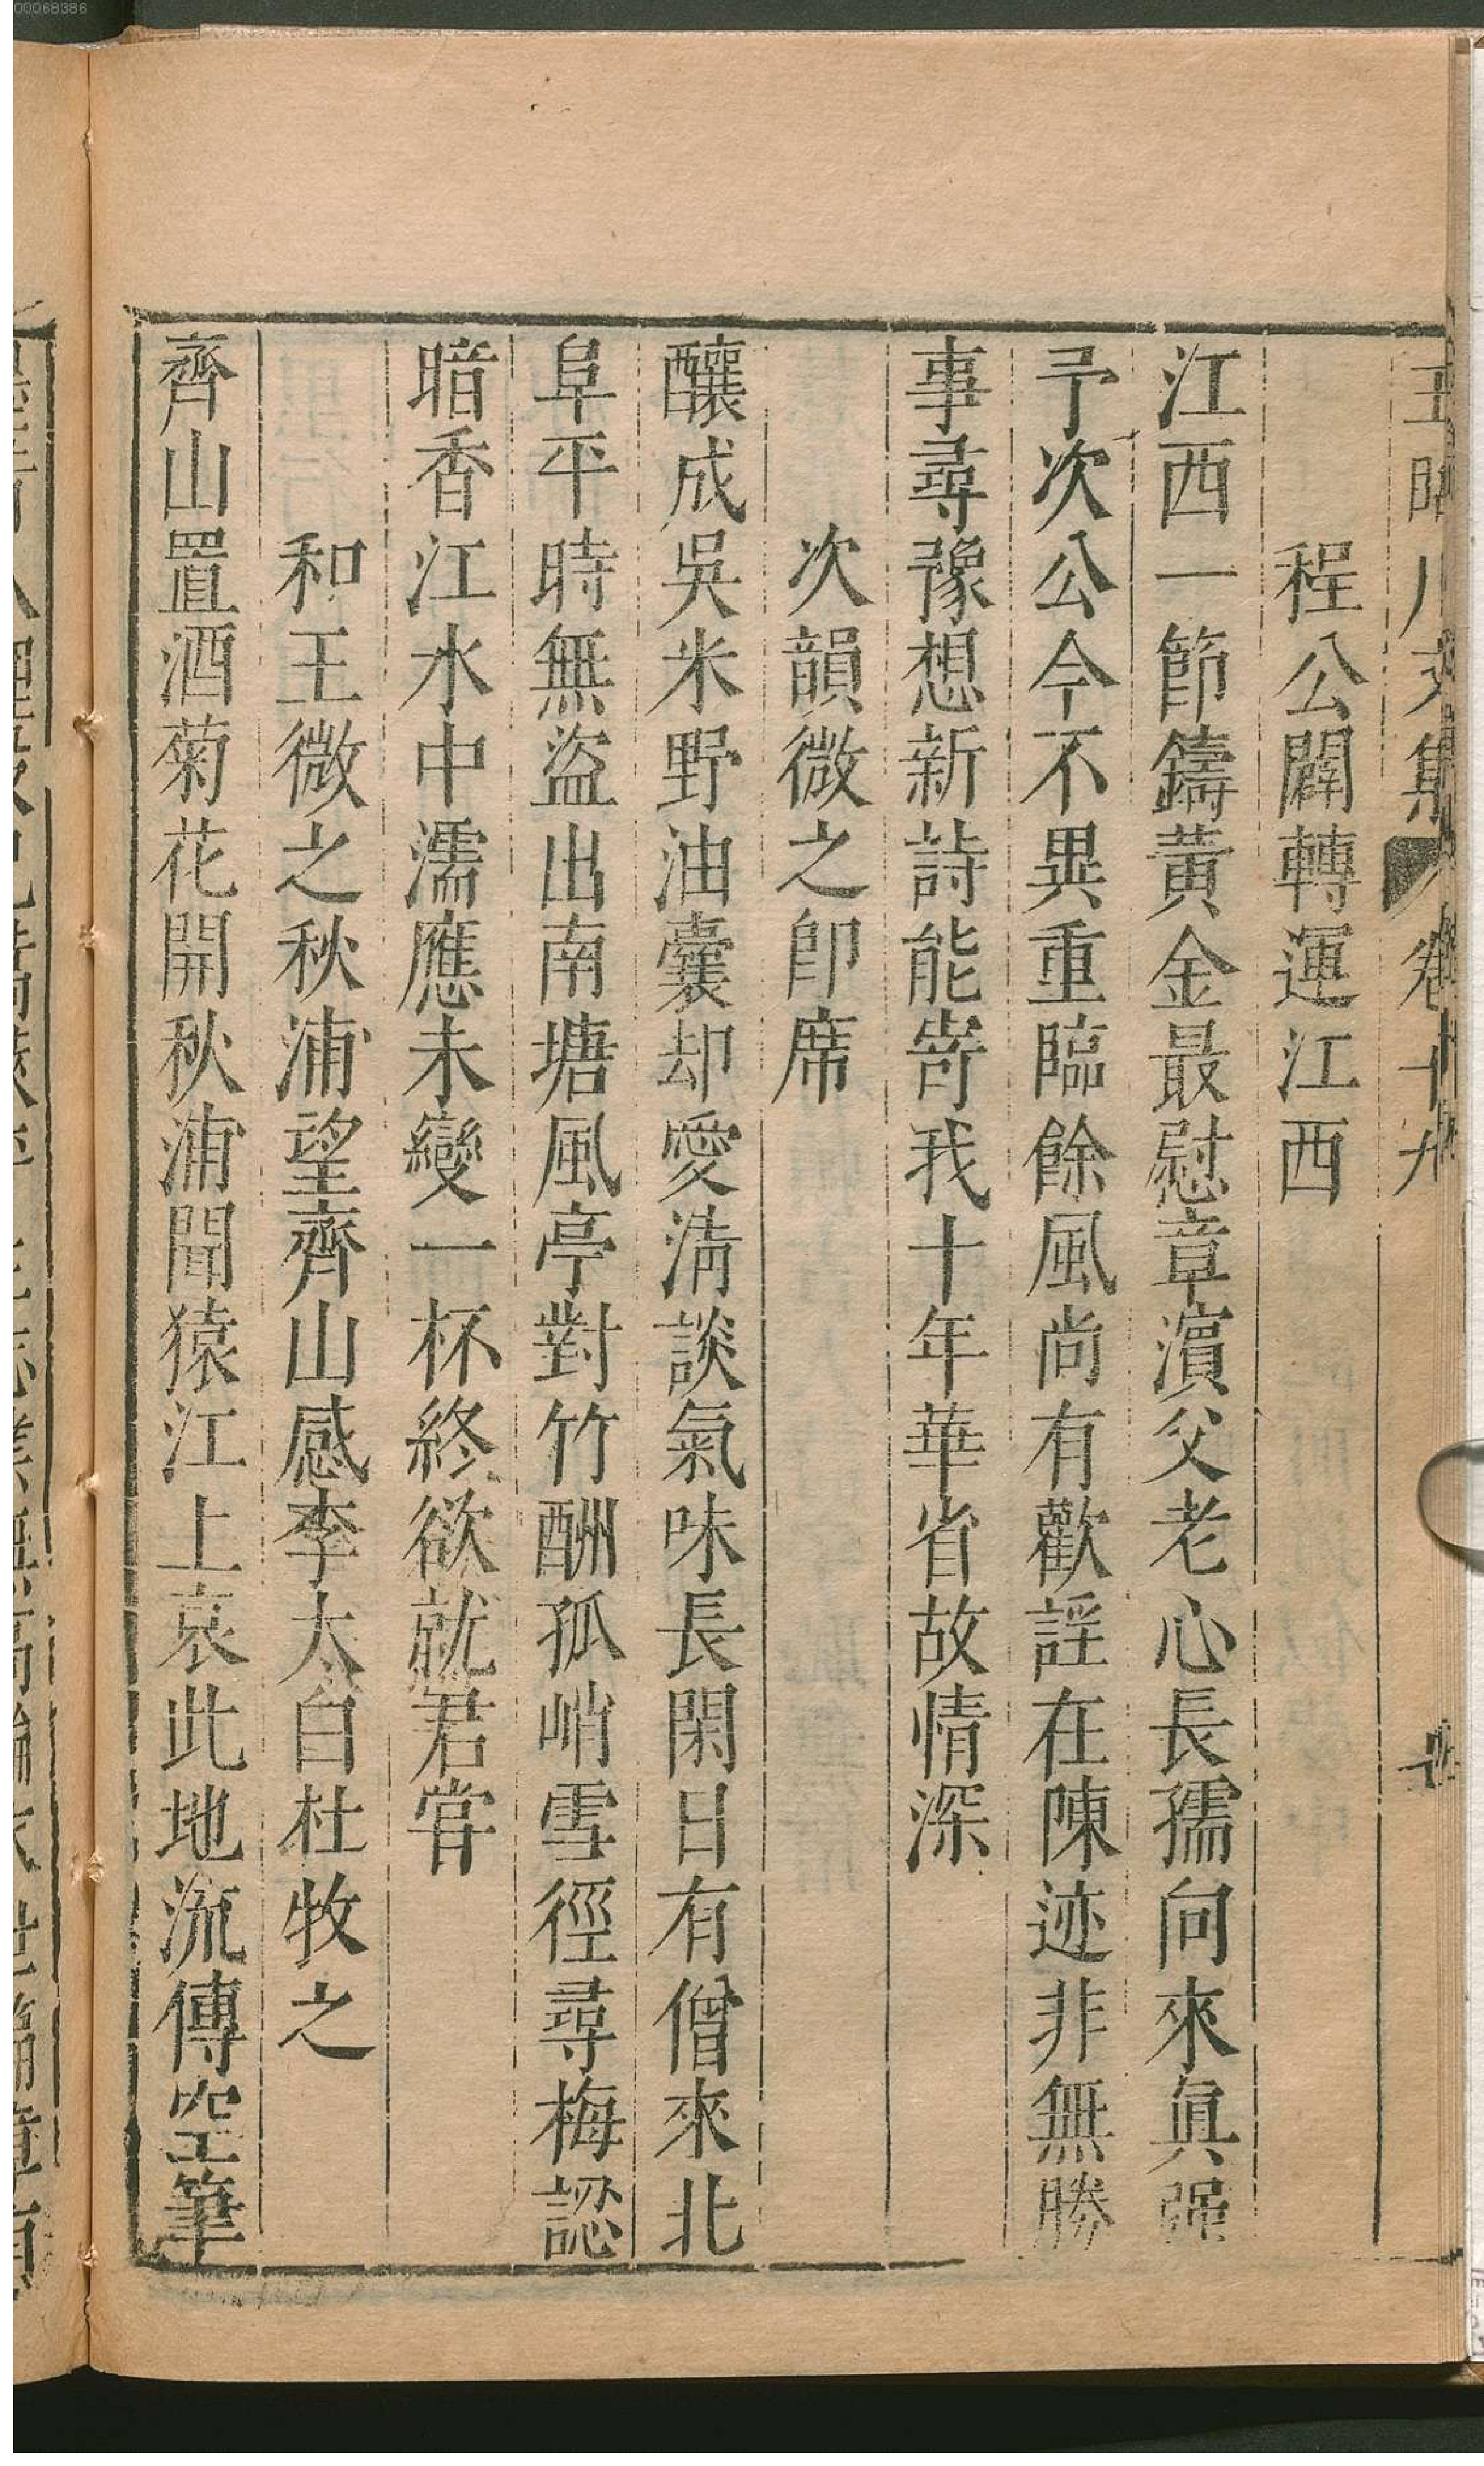 00068386
程公闢轉運江西
江西一節鑄黃金最慰章濵父老心長孺向來眞强
予次公今不異重臨餘風尚有歡謠在陳迹非無勝
事尋豫想新詩能寄我十年華省故情深
次韻微之卽席
釀成吳米野油囊却愛淸談氣味長閑日有僧來北
阜平時無盜出南塘風亭對竹酬孤峭雪徑尋梅認
暗香江水中濡應未變一杯終欲就君嘗
和王微之秋浦望齊山感李太白杜牧之
齊山置酒菊花開秋浦聞猿江上哀此地流傳空筆